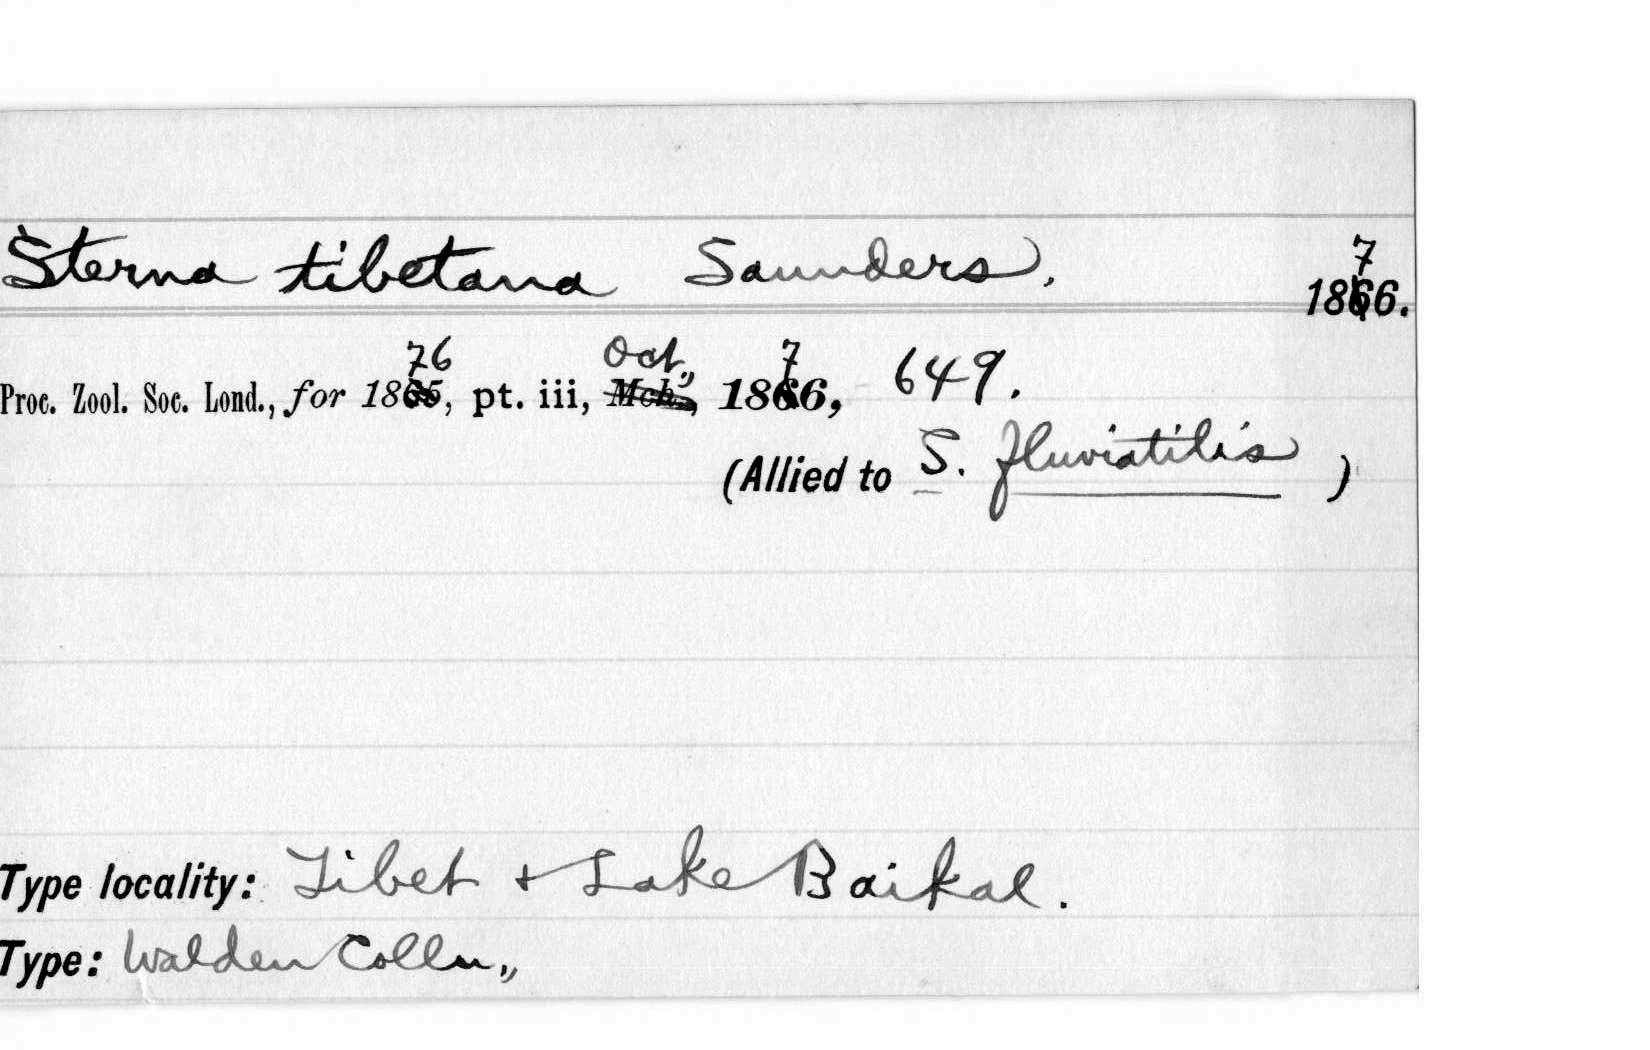 Sterna tibetana Saunders, 1876.
Proc. Zool. Soc. Lond., for 1876, pt. iii, Oct., 1876, 649.
(Allied to S. fluviatilis )
Type locality: Tibet + Lake Baikal.
Type: Walden Colln.,